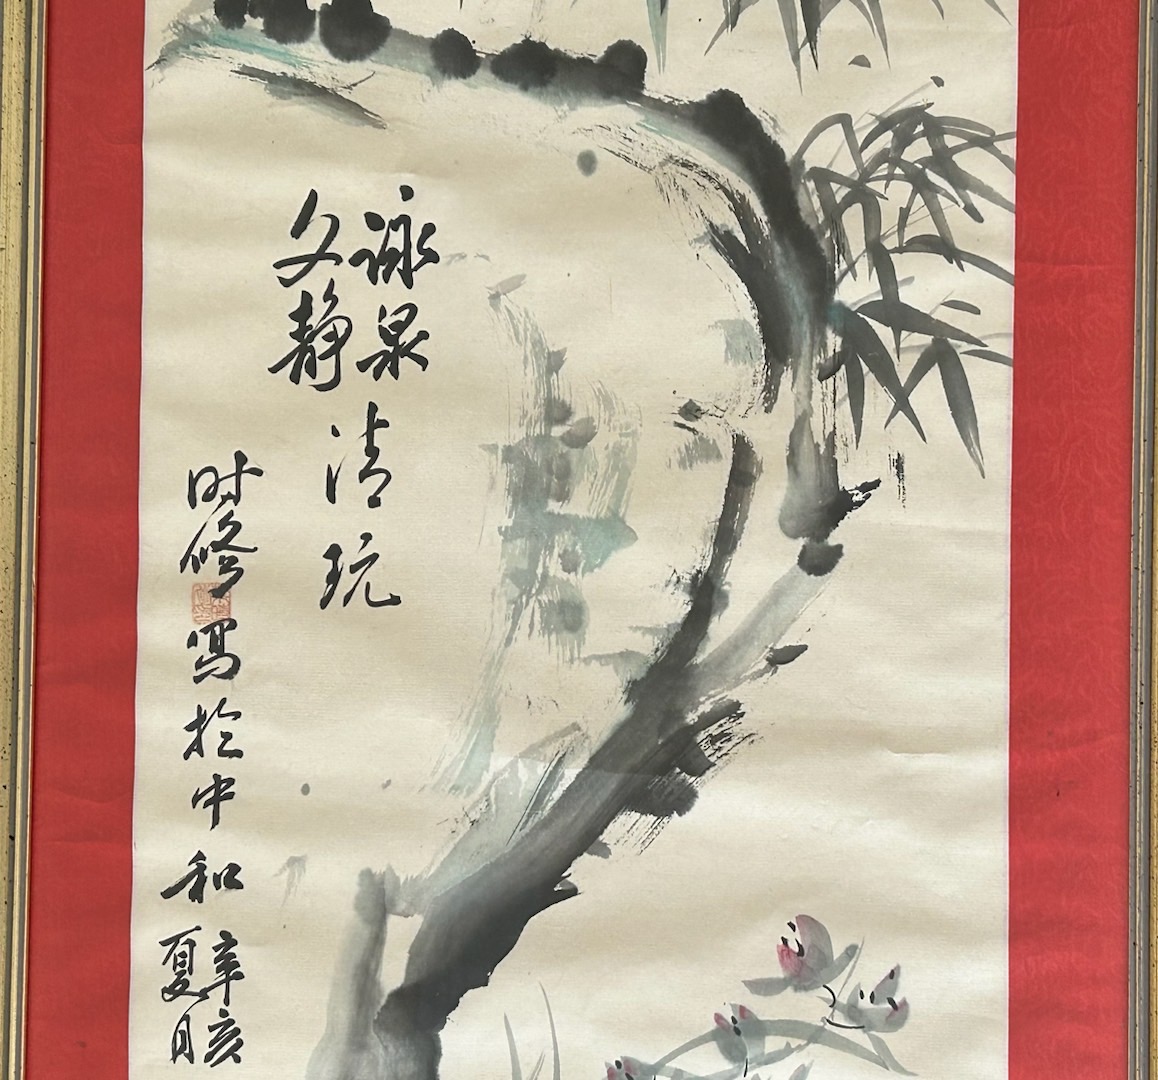 詠泉
文靜
清玩
时修
寫於中和
辛亥
夏月